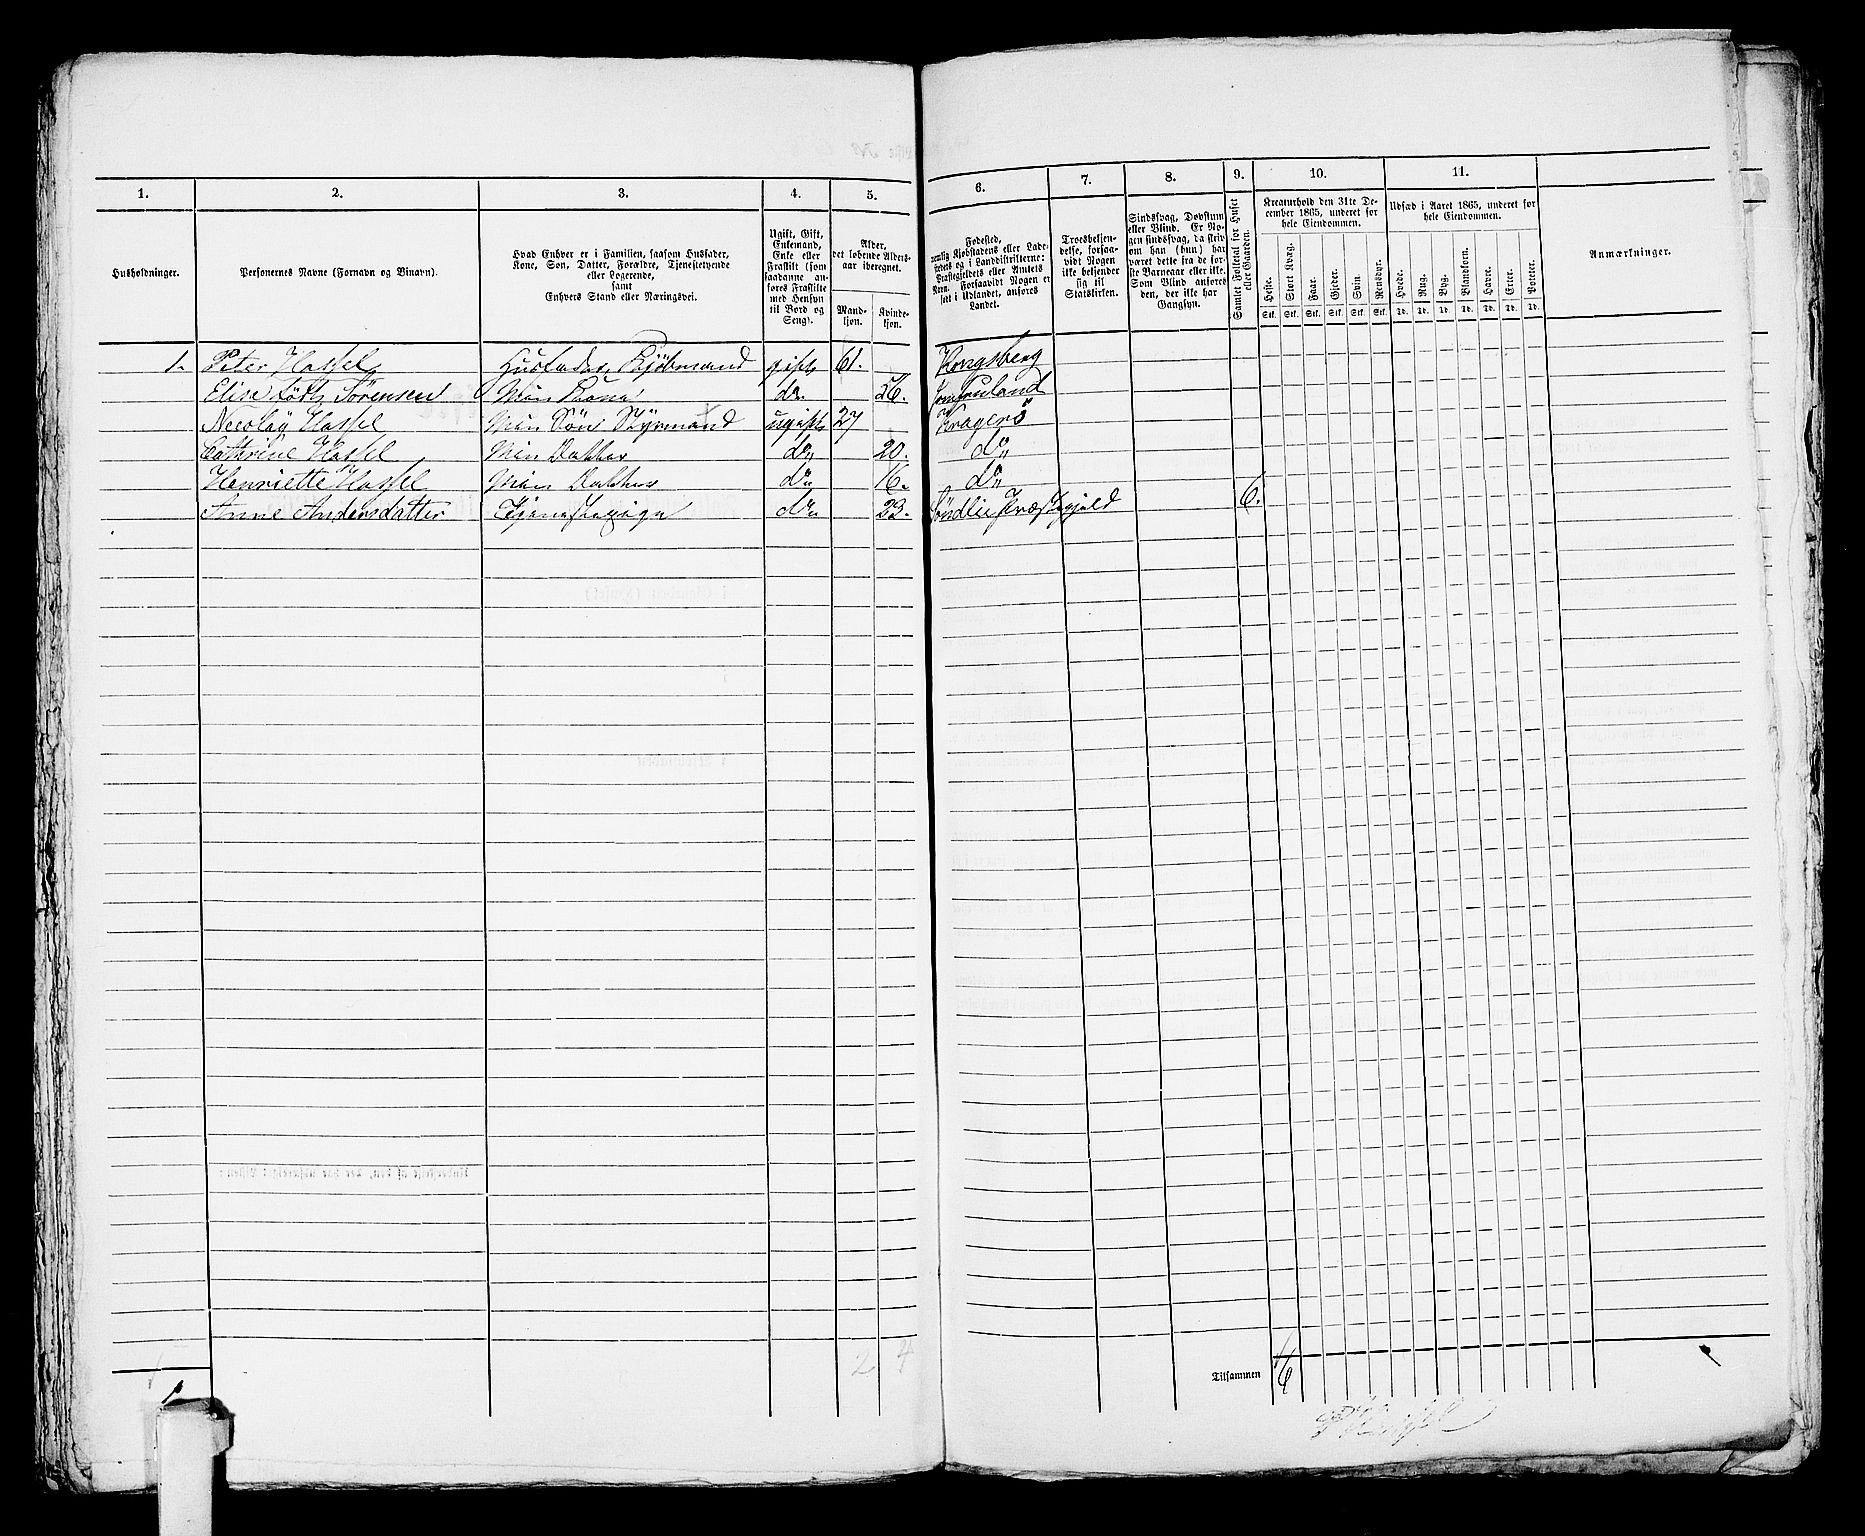 1. 2. 3. 4. 5. 6. 7. 8. 9. 10. 11.
Husholdninger.
Personernes Navne (Fornavn og Binavn).
Hvad Enhver er i Familien, saasom Husfader,
Kone, Søn, Datter, Forældre, Tjenestetyende
eller Logerende,
samt
Enhvers Stand eller Næringsvei.
Ugift, Gift,
Enkemand,
Enke eller
Fraskilt (som
saadanne an-
føres Fraskilte
med Hensyn
til Bord og
Seng).
Alder,
det løbende Alders-
aar iberegnet.
Mand-
kjøn.
Kvinde-
kjøn.
Fødested,
nemlig Kjøbstadens eller Lade-
stedets og i Landdistrikterne:
Præstegjeldets eller Amtets
Navn. Forsaavidt Nogen er
født i Udlandet, anføres
Landet.
Troesbekjen-
delse, forsaa-
vidt Nogen
ikke bekjender
sig til
Statskirken.
Sindssvag, Døvstum
eller Blind. Er No-
gen sindssvag, da skriv
været dette fra de før-
ste Barneaar eller ikke.
Som Blind anføres
den, der ikke har
Gangsyn.
Samlet Folketal for Huset
eller Gaarden.
Kreaturhold den 31te De-
cember 1865, underet for
hele Eiendommen.
Heste. Stort Kvæg. Faar. Gjeder. Svin. Rensdyr.
Stk. Stk. Stk. Stk. Stk. Stk.
Udsæd i Aaret 1865, underet for
hele Eiendommen.
Hvede. Rug. Byg. Blandkorn. Havre. Erter. Poteter.
Td. Td. Td. Td. Td. Td. Td.
Anmærkninger.
1. Peter Hassel Husfader, Kjøbmand gift 61. Kongsberg
Elise Sørensen Min Kone do 56. Jomfruland
Nicolay Hassel Min Søn Styrmand ugift 27 Kragerö
Cathrine Hassel Min Datter do 20. do
Henriette Hassel Min Datter do 16. do
Anne Andersdatter Tjenestepige do 23. Præstegjeld 6.
2 4
Tilsammen 6
P Hassel